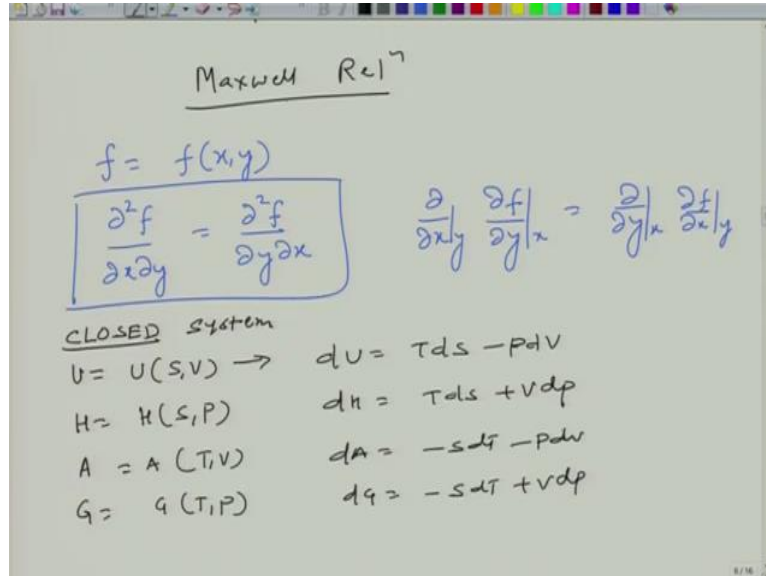 Maxwell Relⁿ
f = f(x,y)
∂²f/∂x∂y = ∂²f/∂y∂x
∂/∂x|y ∂f/∂y|x = ∂/∂y|x ∂f/∂x|y
CLOSED system
U = U(S,V) → dU = TdS - PdV
H = H(S,P) dH = Tds + Vdp
A = A (T,V) dA = -SdT - Pdv
G = G (T,P) dG = -SdT + Vdp
6/16